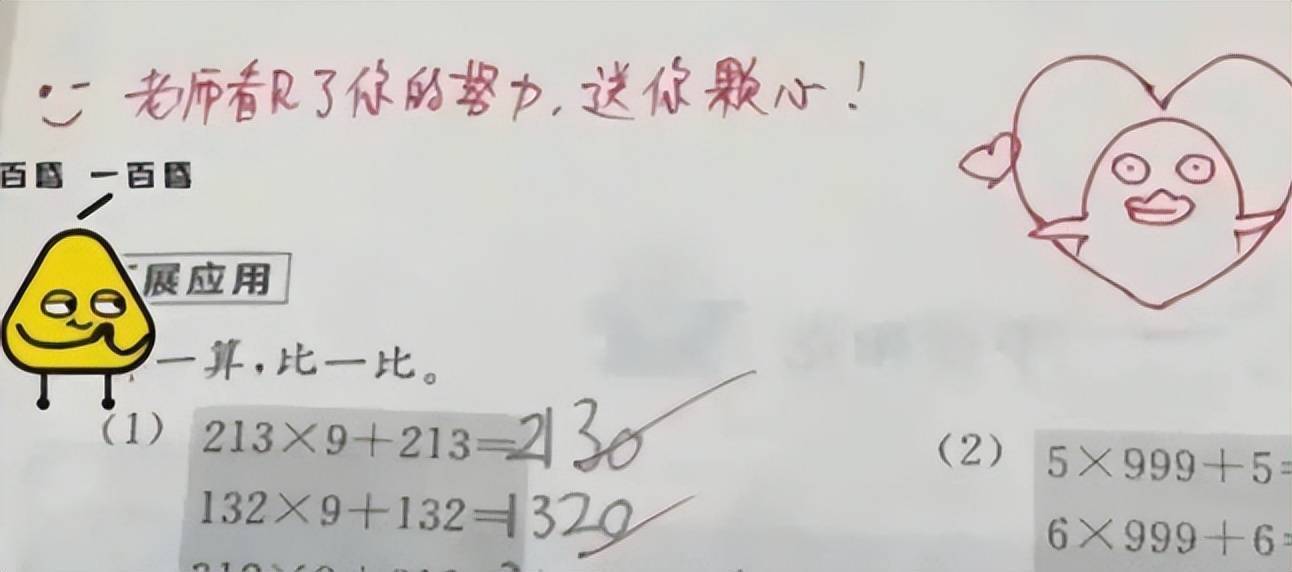 老师看见了你的努力，送你颗心！
展应用
一算，比一比。
(1) 213×9+213=2130
132×9+132=1320
(2) 5×999+5=
6×999+6=